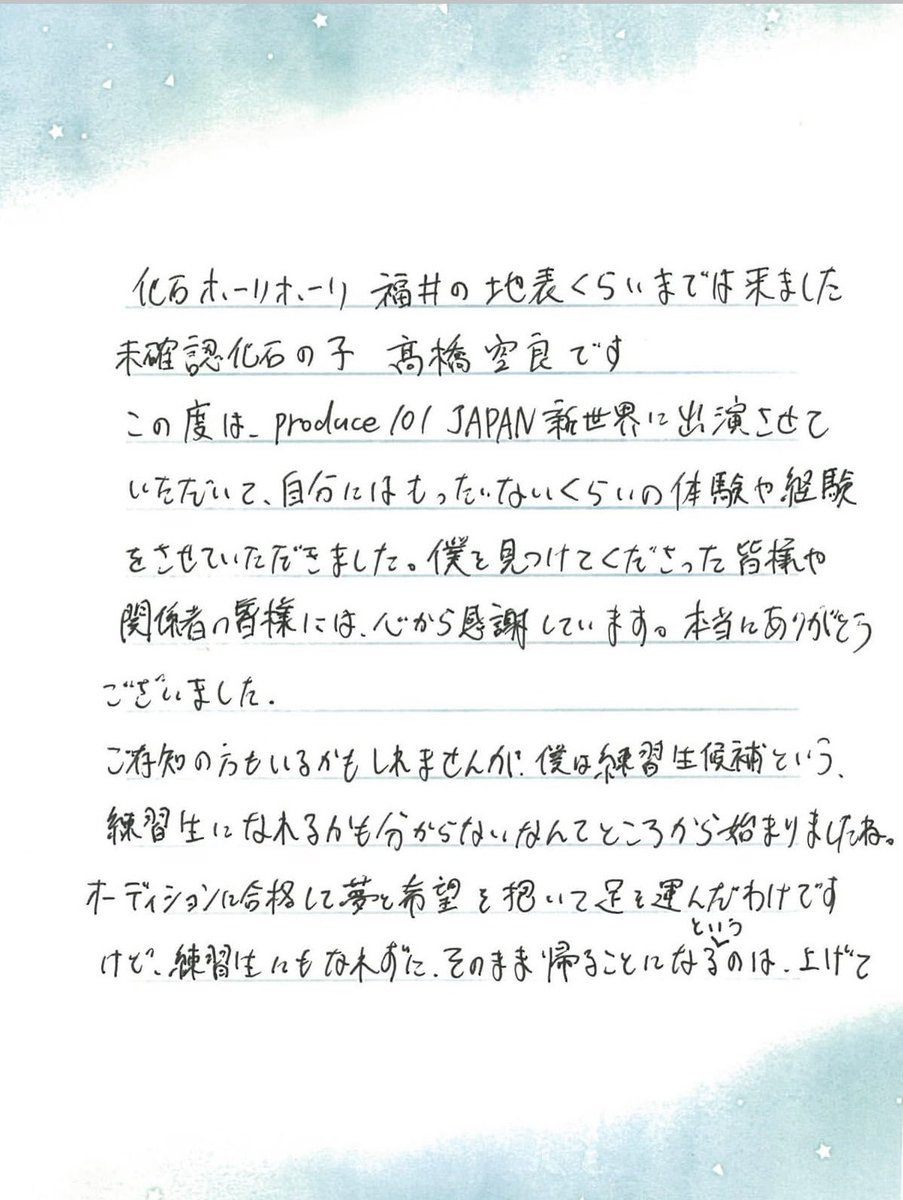 化石ホーリホーリ 福井の地表くらいまでは来ました
未確認化石の子 髙橋空良です
この度は、produce 101 JAPAN 新世界に出演させて
いただいて、自分にはもったいないくらいの体験や経験
をさせていただきました。僕を見つけてくださった皆様や
関係者の皆様には、心から感謝しています。本当にありがとう
ございました。
ご存知の方もいるかもしれませんが、僕は練習生候補という、
練習生になれるかも分からないなんてところから始まりましたね。
オーディションに合格して夢と希望を抱いて足を運んだわけです
けど、練習生にもなれずに、そのまま帰ることになるというのは、上げて